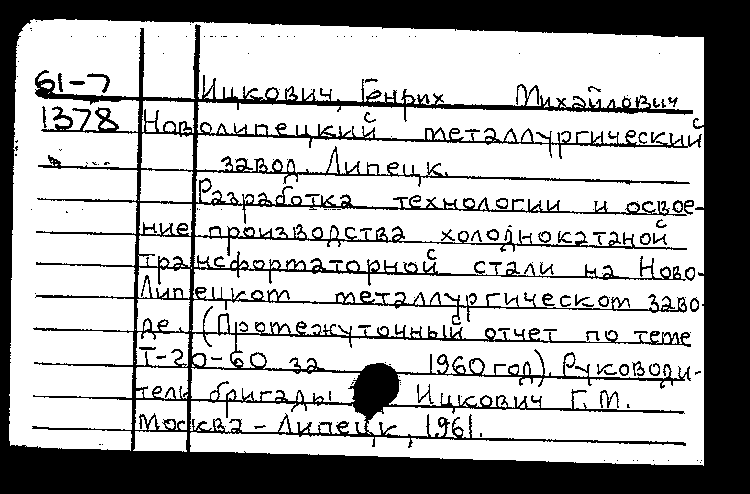 61-7 Ицкович, Генрих Михайлович
1378 Новолипецкий металлургический
завод. Липецк.
Разработка технологии и освое-
ние производства холоднокатаной
трансформаторной стали на Ново-
Липецком металлургическом заво-
де. (Промежуточный отчет по теме
Т-20-60 за 1960 год). Руководи-
тель бригады Ицкович Г.М.
Москва - Липецк, 1961.